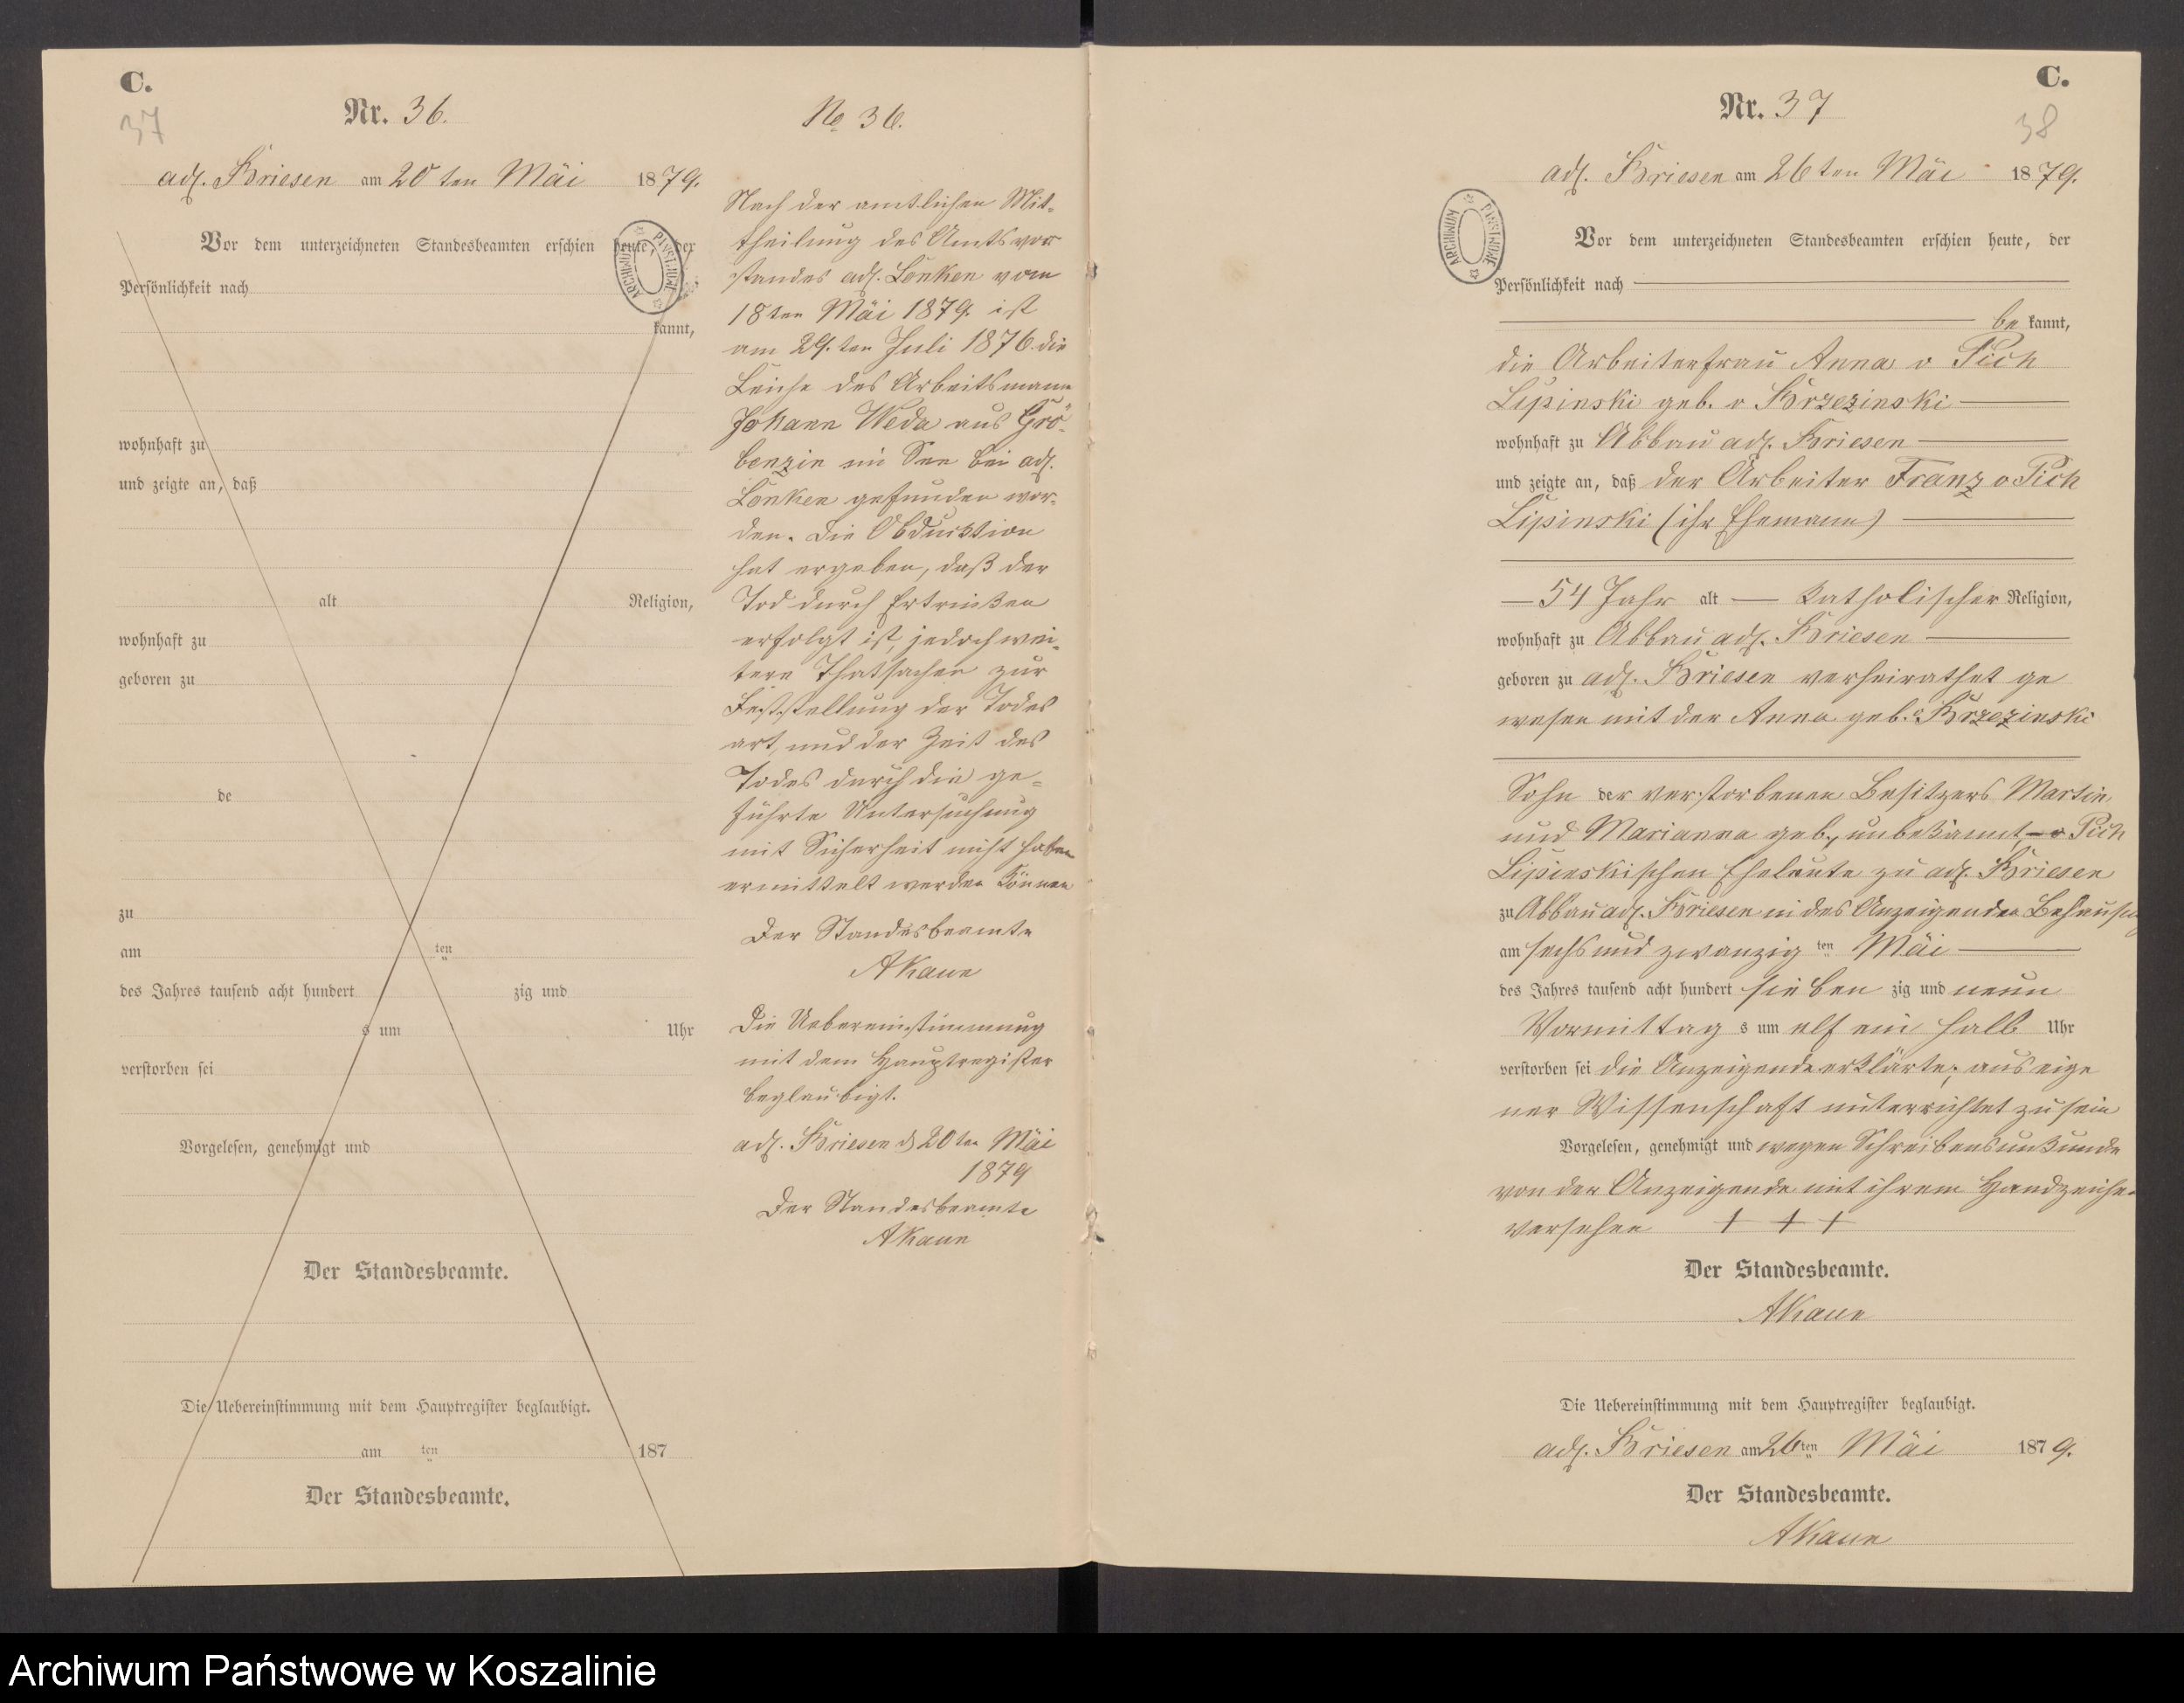 C.
37
Nr. 36.
adl. Briesen am 20 ten Mai 1879.
Vor dem unterzeichneten Standesbeamten erschien heute, der
Persönlichkeit nach
kannt,
wohnhaft zu
und zeigte an, daß
alt Religion,
wohnhaft zu
geboren zu
de
zu
am ten
des Jahres tausend acht hundert zig und
s um Uhr
verstorben sei
Vorgelesen, genehmigt und
Der Standesbeamte.
Die Uebereinstimmung mit dem Hauptregister beglaubigt.
am ten 187
Der Standesbeamte.
No 36.
Nach der amtlichen Mit-
theilung des Amtsvor
standes adl. Lonken vom
18ten Mai 1879 ist
am 29.ten Juli 1876 die
Leiche des Arbeitsmann
Johann Weda aus Grö-
benzin im See bei adl.
Lonken gefunden wor-
den. Die Obduktion
hat ergeben, daß der
Tod durch Ertrinken
erfolgt ist, jedoch wei-
tere Thatsachen zur
Feststellung der Todes
art, und der Zeit des
Todes durch die ge-
führte Untersuchung
mit Sicherheit nicht haben
ermittelt werden können
Der Standesbeamte
AKaun
Die Uebereinstimmung
mit dem Hauptregister
beglaubigt.
adl. Briesen d 20ten Mai
1879
Der Standesbeamte
AKaun
C.
38
Nr. 37
adl. Briesen am 26 ten Mai 1879.
ARCHIWUM PAŃSTWOWE
Vor dem unterzeichneten Standesbeamten erschien heute, der
Persönlichkeit nach
be kannt,
die Arbeiterfrau Anna v Pich
Lipinski geb. v Brzezinski
wohnhaft zu Abbau adl. Briesen
und zeigte an, daß der Arbeiter Franz v Pich
Lipinski (ihr Ehemann)
54 Jahr alt katholischer Religion,
wohnhaft zu Abbau adl. Briesen
geboren zu adl. Briesen verheirathet ge
wesen mit der Anna geb. v Brzezinski
Sohn der verstorbenen Besitzers Martin
und Marianna geb., unbekannt, v Pich
Lipinskischen Eheleute zu adl. Briesen
zu Abbau adl. Briesen in des Anzeigenden Behausung
am sechs und zwanzig ten Mai
des Jahres tausend acht hundert sieben zig und neun
Vormittag s um elf ein halb Uhr
verstorben sei die Anzeigende erklärte, aus eige
ner Wissenschaft unterrichtet zu sein
Vorgelesen, genehmigt und wegen Schreibensunkunde
von der Anzeigende mit ihrem Handzeichen
versehen + + +
Der Standesbeamte.
AKaun
Die Uebereinstimmung mit dem Hauptregister beglaubigt.
adl. Briesen am 26 ten Mai 1879.
Der Standesbeamte.
AKaun
Archiwum Państwowe w Koszalinie